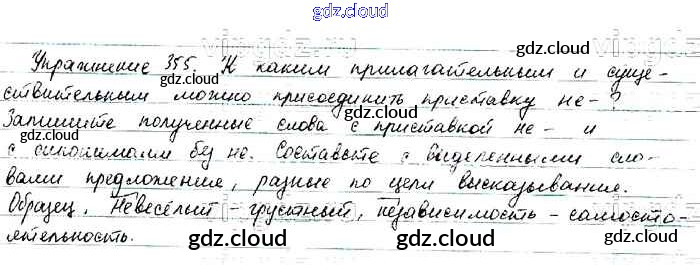 gdz.cloud
Упражнение 355. К каким прилагательным и суще-
gdz.cloud gdz.cloud
ствительным можно присоединить приставку не-?
Запишите полученные слова с приставкой не- и
gdz.cloud gdz.cloud
с синонимами без не. Составьте с выделенными сло-
вами предложения, разные по цели высказывания.
gdz.cloud gdz.cloud
Образец. Невесёлый - грустный, независимость - самосто-
ятельность.
gdz.cloud gdz.cloud